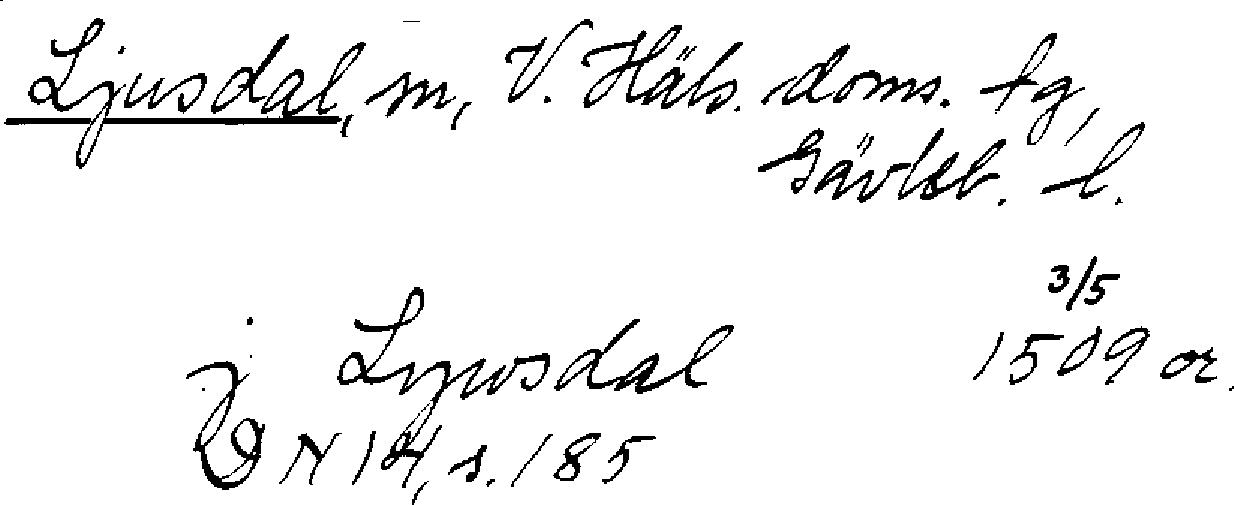 Ljusdal, sn, V. Häls. doms. tg,
Gävleb. l.
3/5
j Lywsdal 1509 or.
DN 14, s. 185